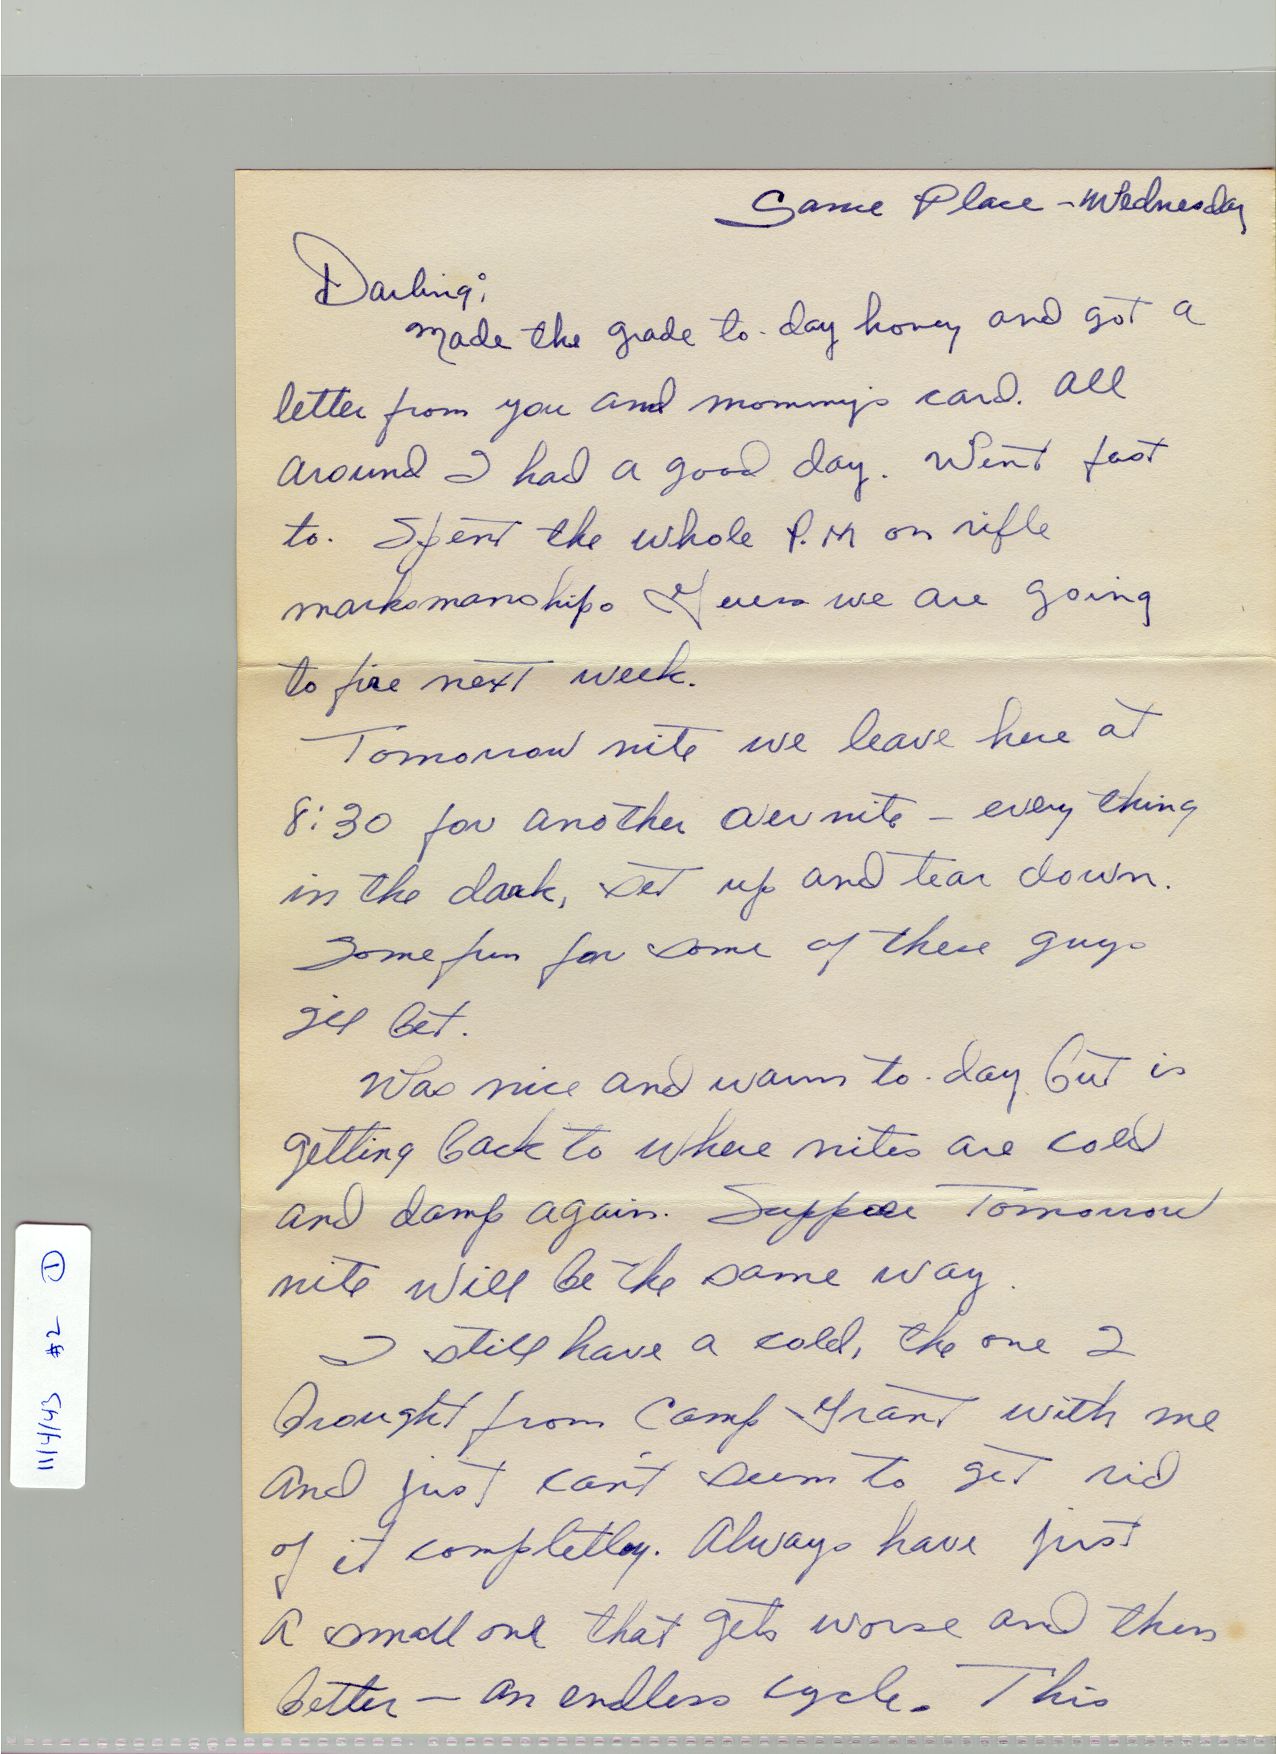 Same Place - Wednesday
Darling;
Made the grade to-day honey and got a
letter from you and mommy's card. All
around I had a good day. Went fast
to. Spent the whole P.M on rifle
marksmanship. Guess we are going
to fire next week.
Tomorrow nite we leave here at
8:30 for another overnite - every thing
in the dark, set up and tear down.
Some fun for some of these guys
I'll bet.
Was nice and warm to-day but is
getting back to where nites are cold
and damp again. Suppose Tomorrow
nite will be the same way.
I still have a cold, the one I
brought from Camp Grant with me
and just can't seem to get rid
of it completley. Always have just
a small one that gets worse and then
better - an endless cycle. This
11/4/43 #2 ①